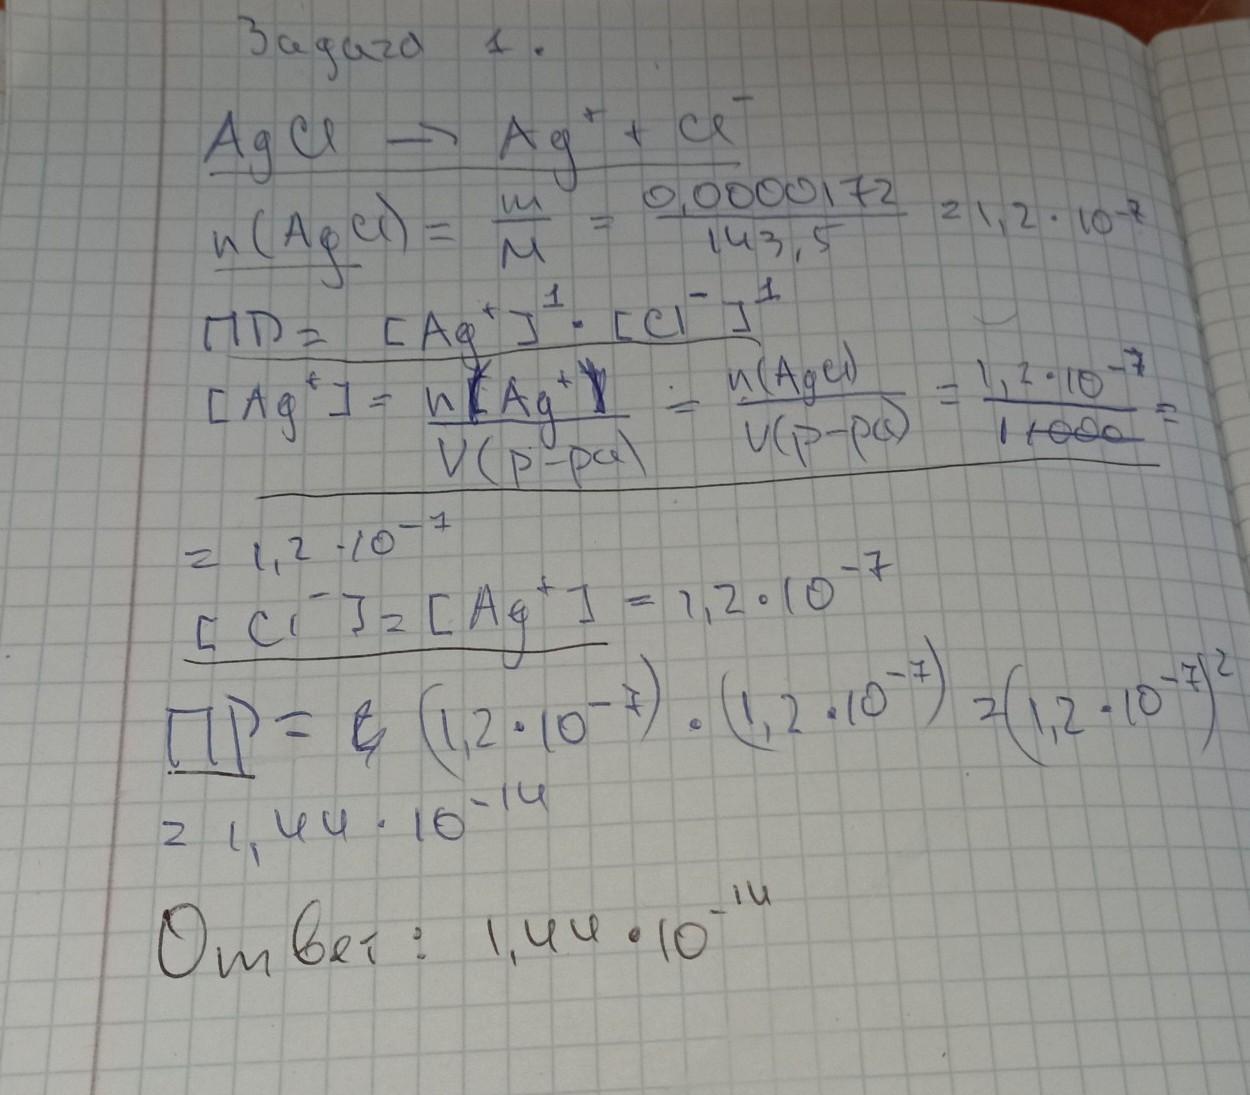 Задача 1.
AgCl → Ag⁺ + Cl⁻
n(AgCl) = m/M = 0,0000172/143,5 = 1,2 · 10⁻⁷
ПР = [Ag⁺]¹ · [Cl⁻]¹
[Ag⁺] = n(Ag⁺)/V(р-ра) = n(AgCl)/V(р-ра) = 1,2 · 10⁻⁷/1 =
= 1,2 · 10⁻⁷
[Cl⁻] = [Ag⁺] = 1,2 · 10⁻⁷
ПР = (1,2 · 10⁻⁷) · (1,2 · 10⁻⁷) = (1,2 · 10⁻⁷)²
= 1,44 · 10⁻¹⁴
Ответ: 1,44 · 10⁻¹⁴